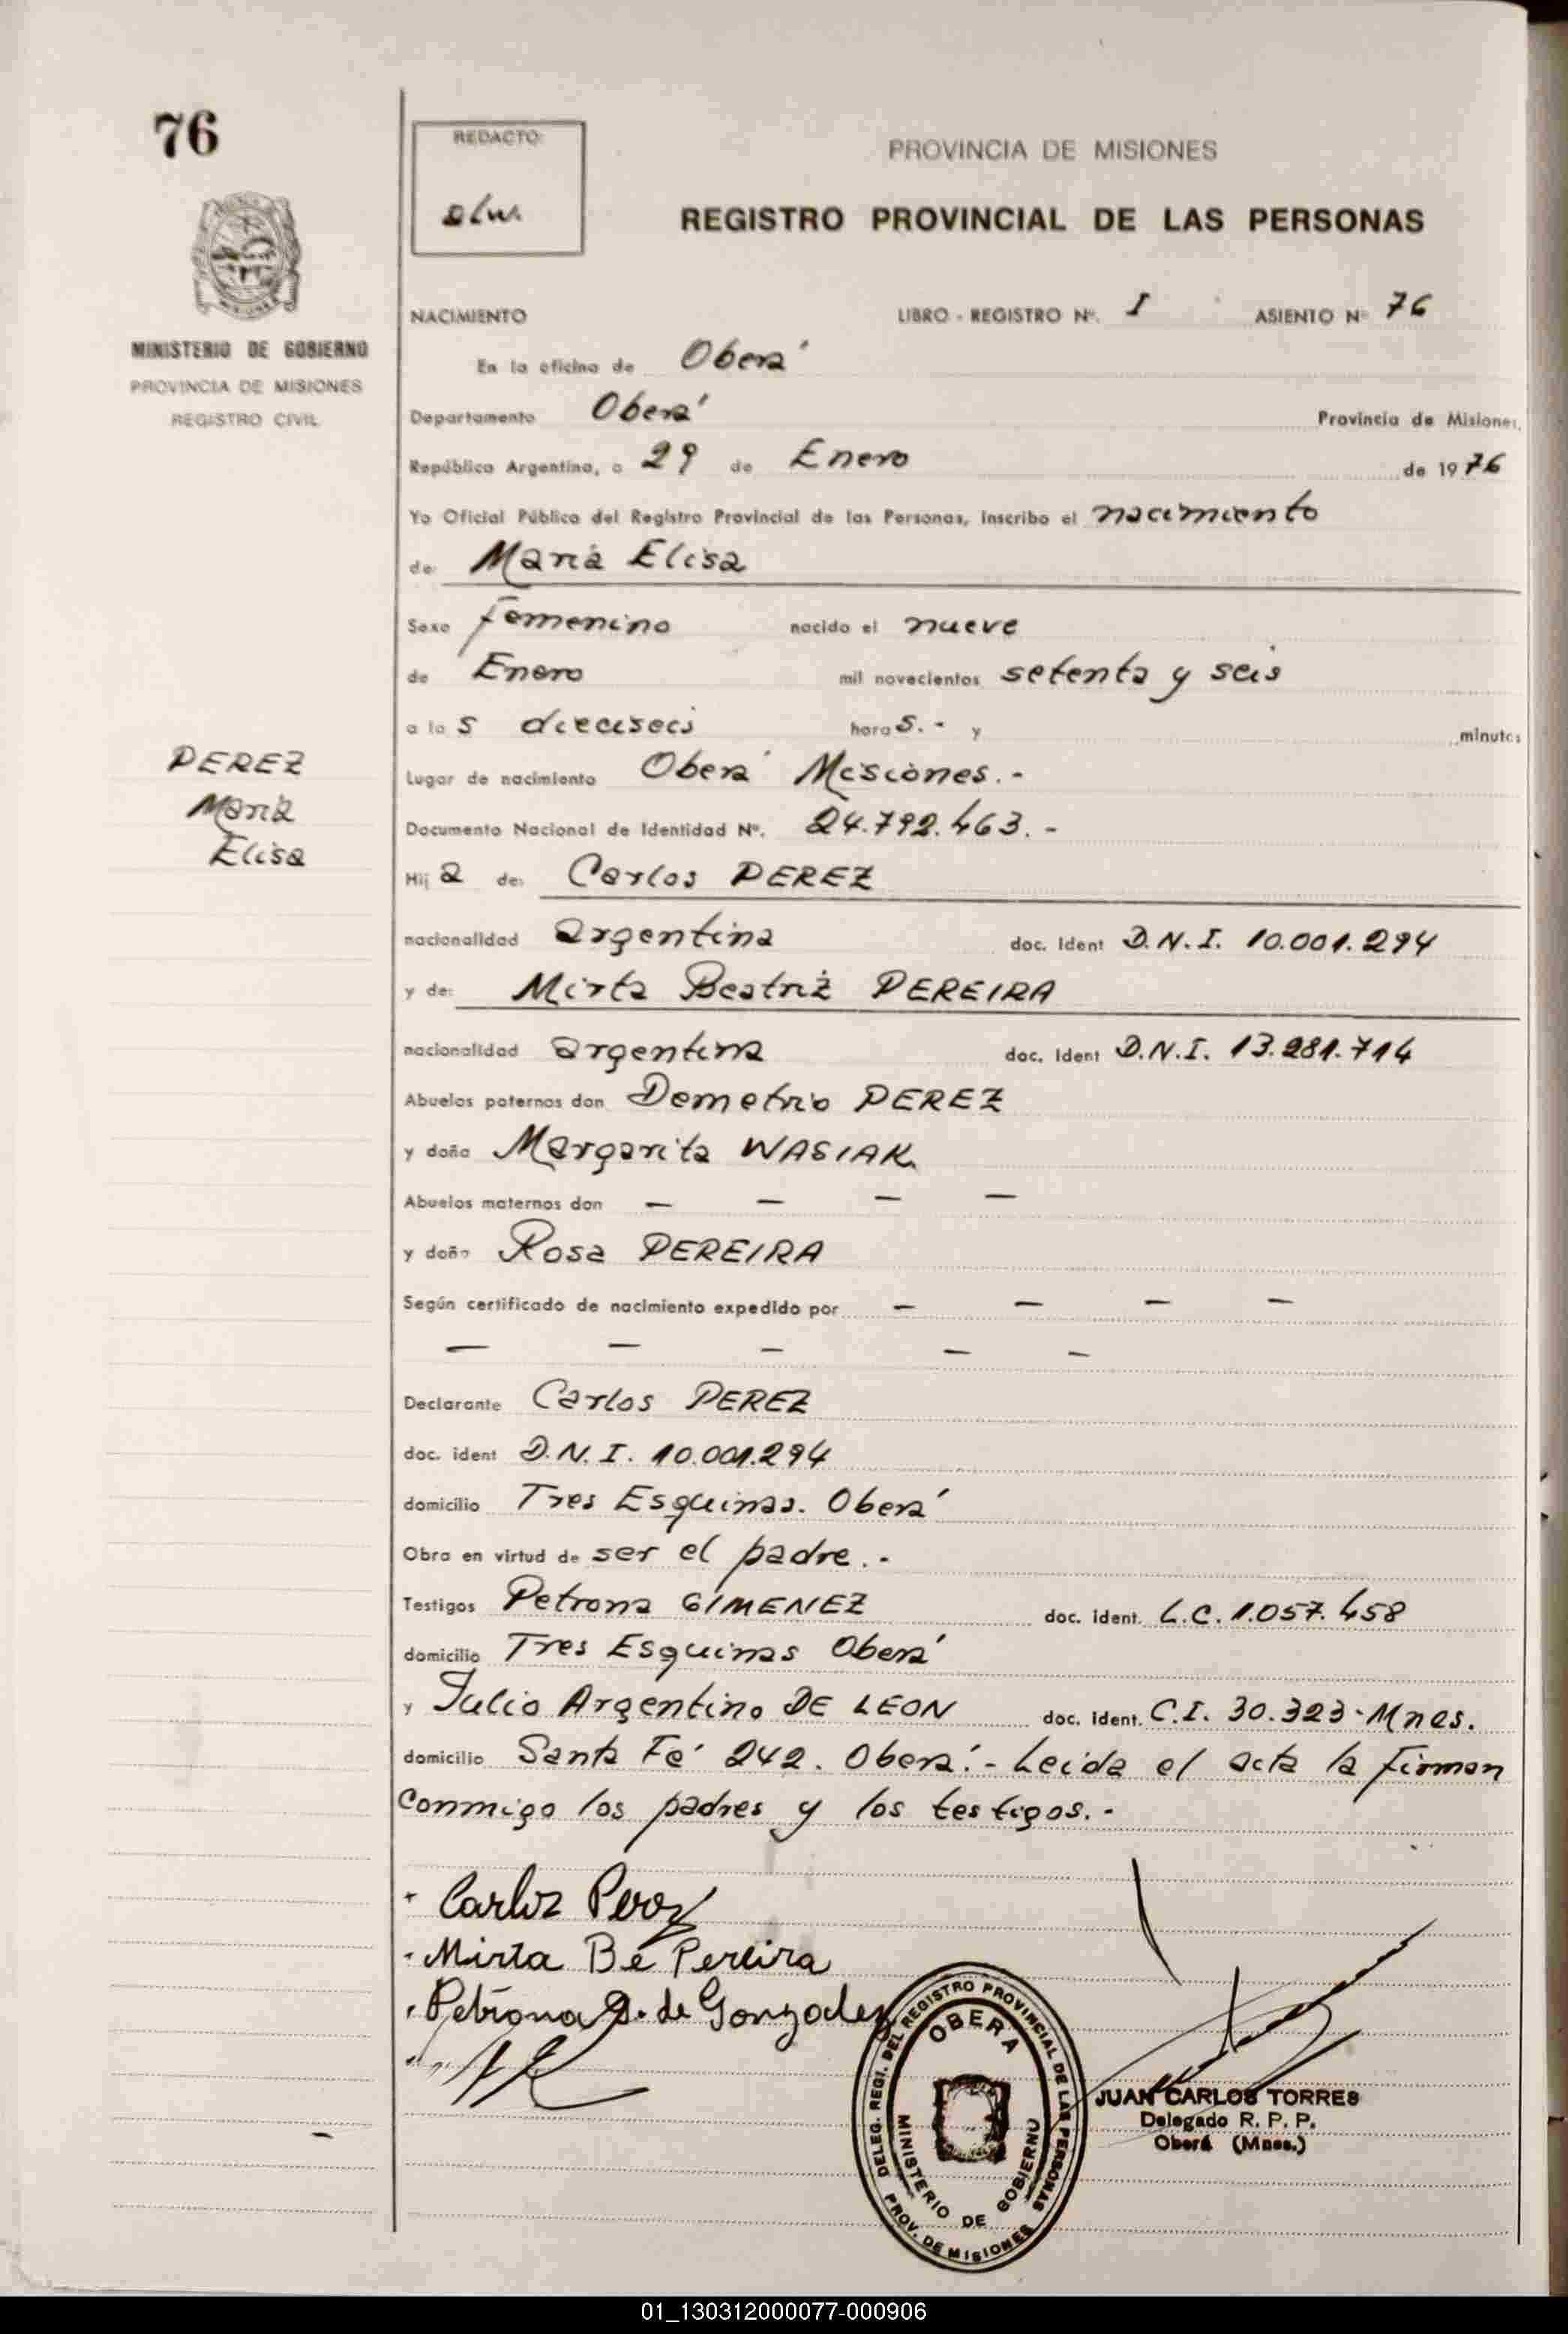 76
REDACTO:
PROVINCIA DE MISIONES
REGISTRO PROVINCIAL DE LAS PERSONAS
MINISTERIO DE GOBIERNO
PROVINCIA DE MISIONES
REGISTRO CIVIL
NACIMIENTO LIBRO - REGISTRO Nº. I ASIENTO Nº 76
En la oficina de Oberá
Departamento Oberá Provincia de Misiones,
República Argentina, a 29 de Enero de 1976
Yo Oficial Público del Registro Provincial de las Personas, inscribo el nacimiento
de: María Elisa
Sexo femenino nacido el nueve
de Enero mil novecientos setenta y seis
a las dieciseis horas.- y minutos
Lugar de nacimiento Oberá Misiones.-
Documento Nacional de Identidad Nº. 24.792.463.-
PEREZ
María
Elisa
Hija de: Carlos PEREZ
nacionalidad argentina doc. Ident D.N.I. 10.001.294
y de: Mirta Beatriz PEREIRA
nacionalidad argentina doc. Ident D.N.I. 13.281.714
Abuelos paternos don Demetrio PEREZ
y doña Margarita WASIAK
Abuelos maternos don — — — —
y doña Rosa PEREIRA
Según certificado de nacimiento expedido por — — — —
— — — — —
Declarante Carlos PEREZ
doc. ident D.N.I. 10.001.294
domicilio Tres Esquinas. Oberá
Obra en virtud de ser el padre.-
Testigos Petrona GIMENEZ doc. ident. L.C. 1.057.458
domicilio Tres Esquinas Oberá
y Julio Argentino DE LEON doc. ident. C.I. 30.323-Mnes.
domicilio Santa Fé 242. Oberá.- Leida el acta la firman
conmigo los padres y los testigos.-
Carlos Perez
Mirta Be Pereira
Petrona G. de Gonzalez
DELEG. REGI. DEL REGISTRO PROVINCIAL DE LAS PERSONAS
OBERA
MINISTERIO DE GOBIERNO
PROV. DE MISIONES
JUAN CARLOS TORRES
Delegado R. P. P.
Oberá (Mnes.)
01_130312000077-000906